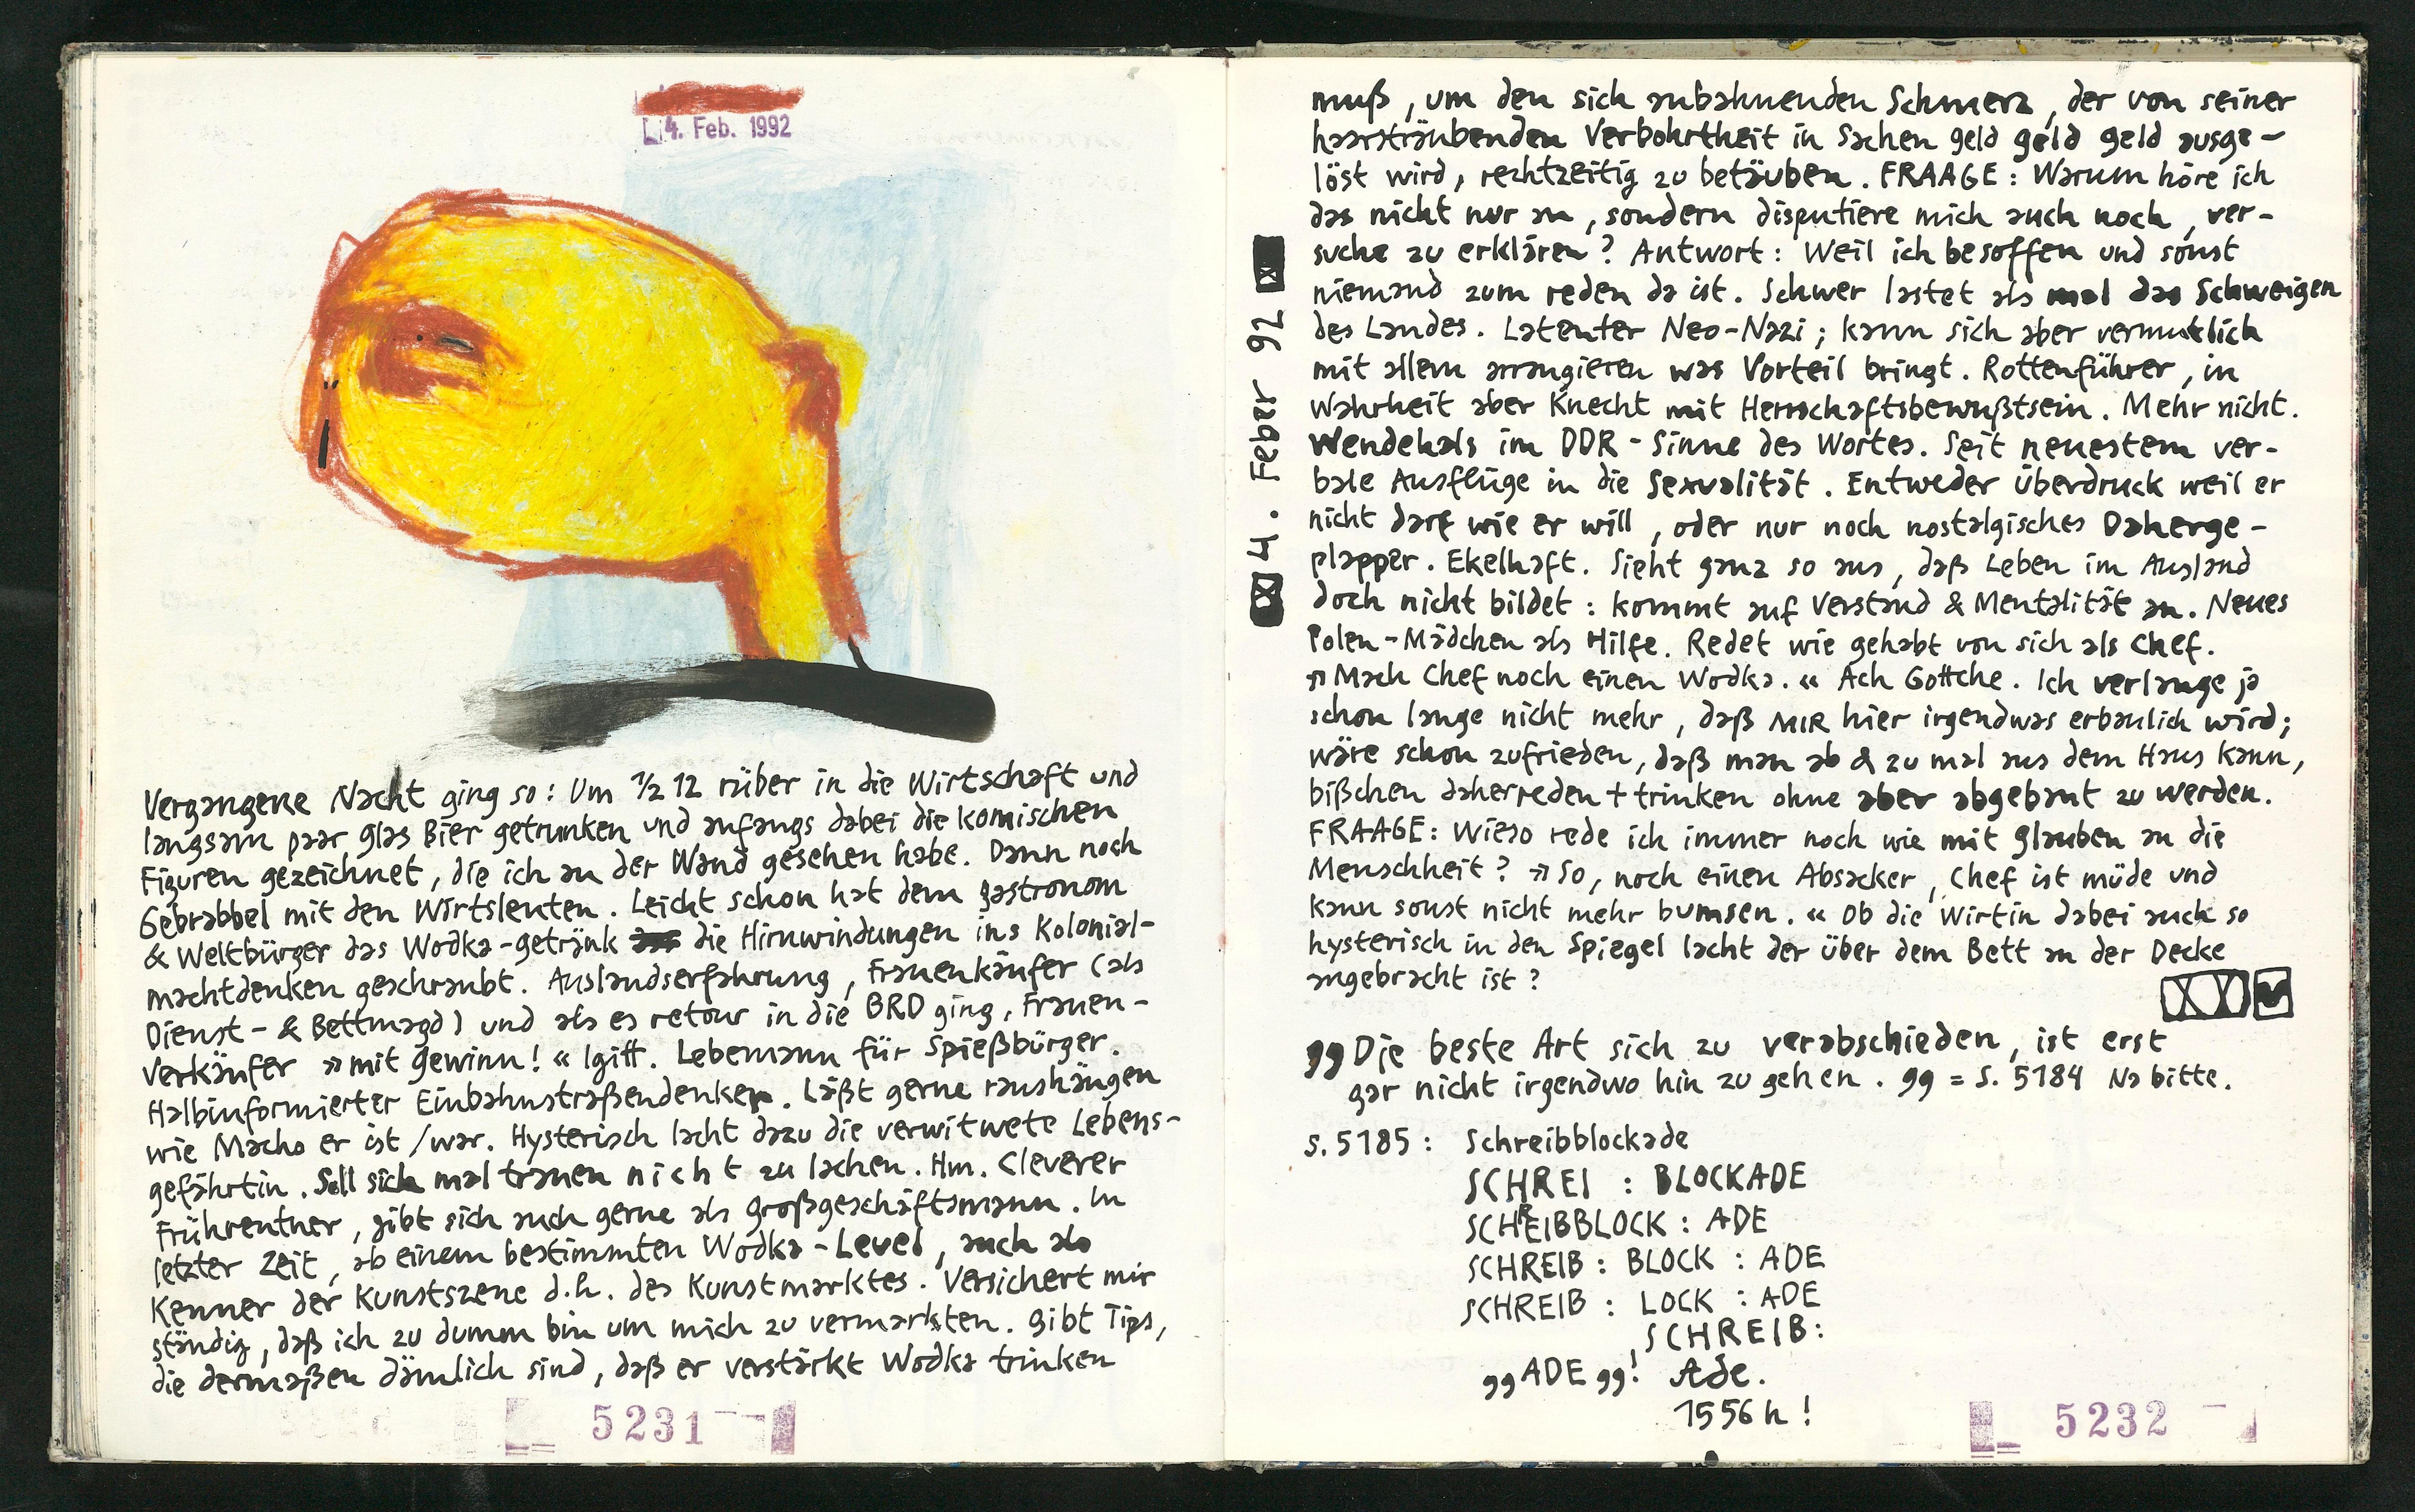 4. Feb. 1992
Vergangene Nacht ging so: Um ½ 12 rüber in die Wirtschaft und
langsam paar Glas Bier getrunken und anfangs dabei die komischen
Figuren gezeichnet, die ich an der Wand gesehen habe. Dann noch
Gebrabbel mit den Wirtsleuten. Leicht schon hat dem Gastronom
& Weltbürger das Wodka-Getränk die Hirnwindungen ins Kolonial-
machtdenken geschraubt. Auslandserfahrung, Frauenkäufer (als
Dienst- & Bettmagd) und als es retour in die BRD ging, Frauen-
verkäufer »mit Gewinn!« Igitt. Lebemann für Spießbürger.
Halbinformierter Einbahnstraßendenker. Läßt gerne raushängen
wie Macho er ist/war. Hysterisch lacht dazu die verwitwete Lebens-
gefährtin. Soll sich mal trauen nicht zu lachen. Hm. Cleverer
Frührentner, gibt sich auch gerne als Großgeschäftsmann. In
letzter Zeit, ab einem bestimmten Wodka-Level, auch als
Kenner der Kunstszene d.h. des Kunstmarktes. Versichert mir
ständig, daß ich zu dumm bin um mich zu vermarkten. Gibt Tips,
die dermaßen dämlich sind, daß er verstärkt Wodka trinken
5231
4. Feber 92
muß, um den sich anbahnenden Schmerz, der von seiner
haarsträubenden Verbohrtheit in Sachen Geld Geld Geld ausge-
löst wird, rechtzeitig zu betäuben. FRAAGE: Warum höre ich
das nicht nur an, sondern disputiere mich auch noch, ver-
suche zu erklären? Antwort: Weil ich besoffen und sonst
niemand zum reden da ist. Schwer lastet als mal das Schweigen
des Landes. Latenter Neo-Nazi; kann sich aber vermutlich
mit allem arrangieren was Vorteil bringt. Rottenführer, in
Wahrheit aber Knecht mit Herrschaftsbewußtsein. Mehr nicht.
Wendehals im DDR-Sinne des Wortes. Seit neuestem ver-
bale Ausflüge in die Sexualität. Entweder Überdruck weil er
nicht darf wie er will, oder nur noch nostalgisches Daherge-
plapper. Ekelhaft. Sieht ganz so aus, daß Leben im Ausland
doch nicht bildet: kommt auf Verstand & Mentalität an. Neues
Polen-Mädchen als Hilfe. Redet wie gehabt von sich als Chef.
»Mach Chef noch einen Wodka.« Ach Gottche. Ich verlange ja
schon lange nicht mehr, daß MIR hier irgendwas erbaulich wird;
wäre schon zufrieden, daß man ab & zu mal aus dem Haus kann,
bißchen daherreden + trinken ohne aber abgebaut zu werden.
FRAAGE: Wieso rede ich immer noch wie mit Glauben an die
Menschheit? »So, noch einen Absacker, Chef ist müde und
kann sonst nicht mehr bumsen.« Ob die Wirtin dabei auch so
hysterisch in den Spiegel lacht der über dem Bett an der Decke
angebracht ist?
„Die beste Art sich zu verabschieden, ist erst
gar nicht irgendwo hin zu gehen.„ = S. 5184 Na bitte.
S. 5185: Schreibblockade
SCHREI : BLOCKADE
SCHREIBBLOCK : ADE
SCHREIB : BLOCK : ADE
SCHREIB : LOCK : ADE
SCHREIB:
„ADE„! Ade.
1556 h!
5232